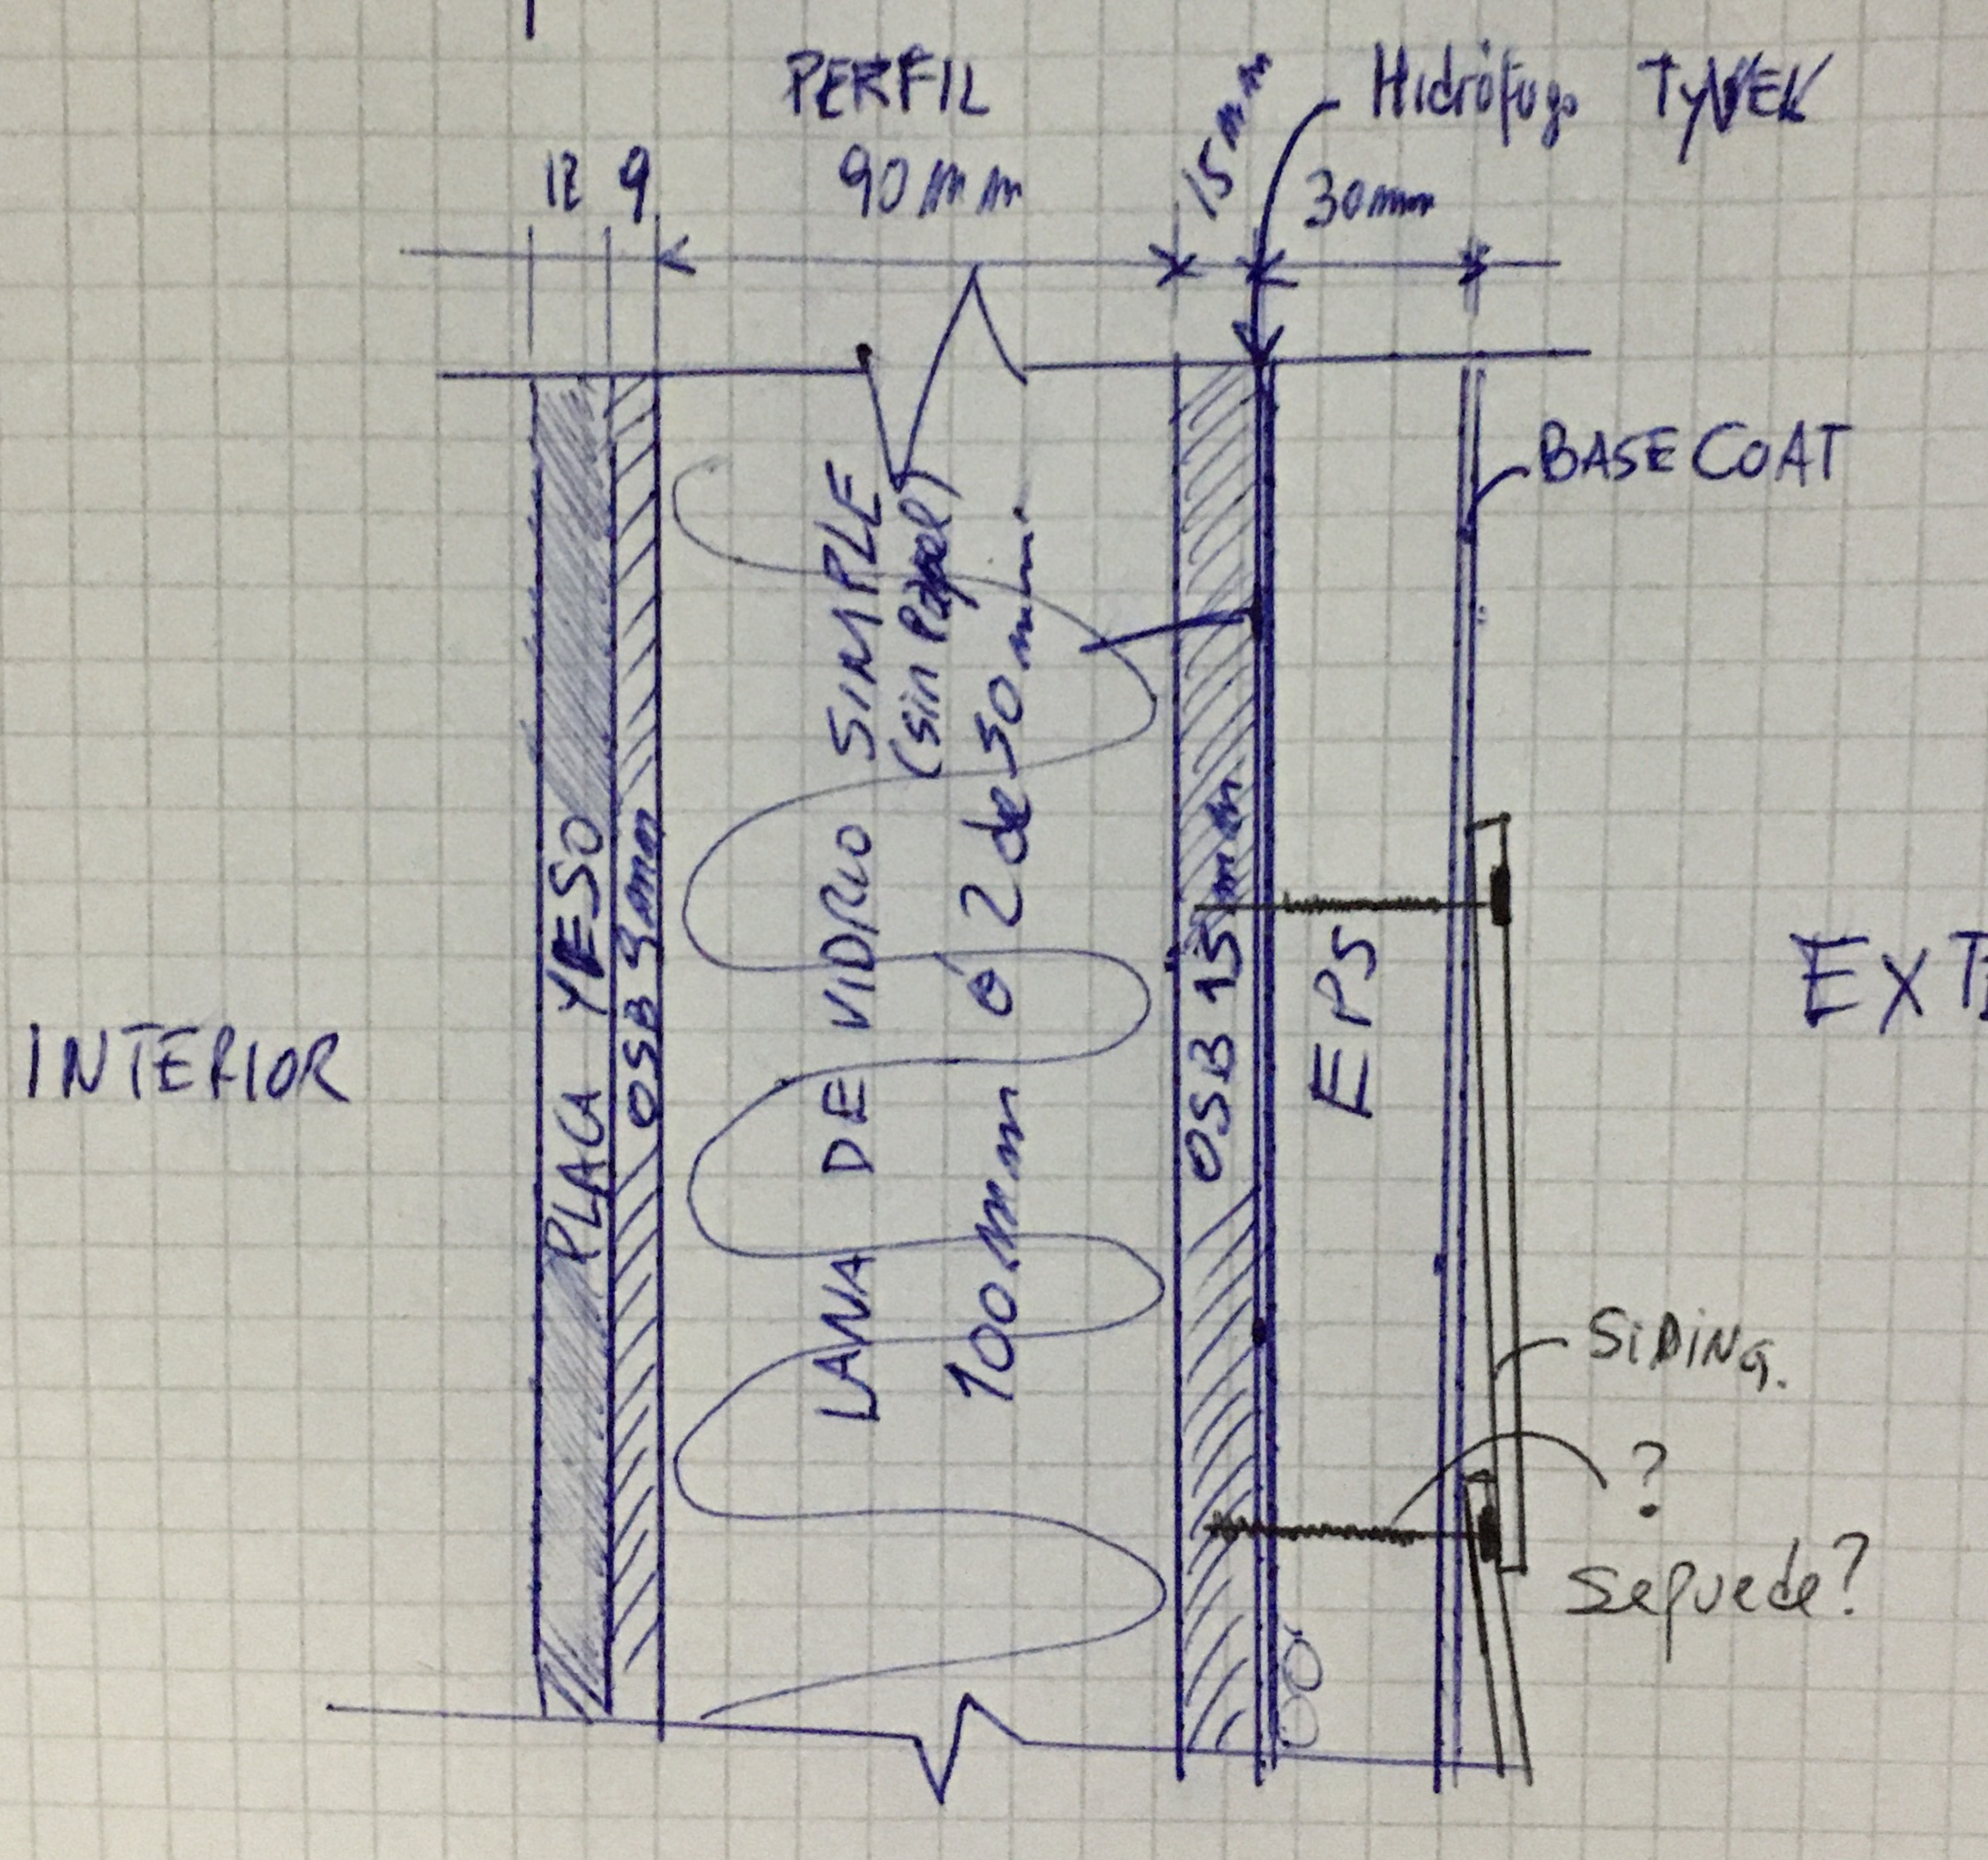 PERFIL
90mm
12
9
15mm
Hidrófugo TYVEK
30mm
BASE COAT
INTERIOR
PLACA YESO
OSB 9mm
LANA DE VIDRIO SIMPLE
(sin papel)
100mm ó 2 de 50mm.
OSB 15mm
EPS
EXTE
SIDING.
?
Se puede?